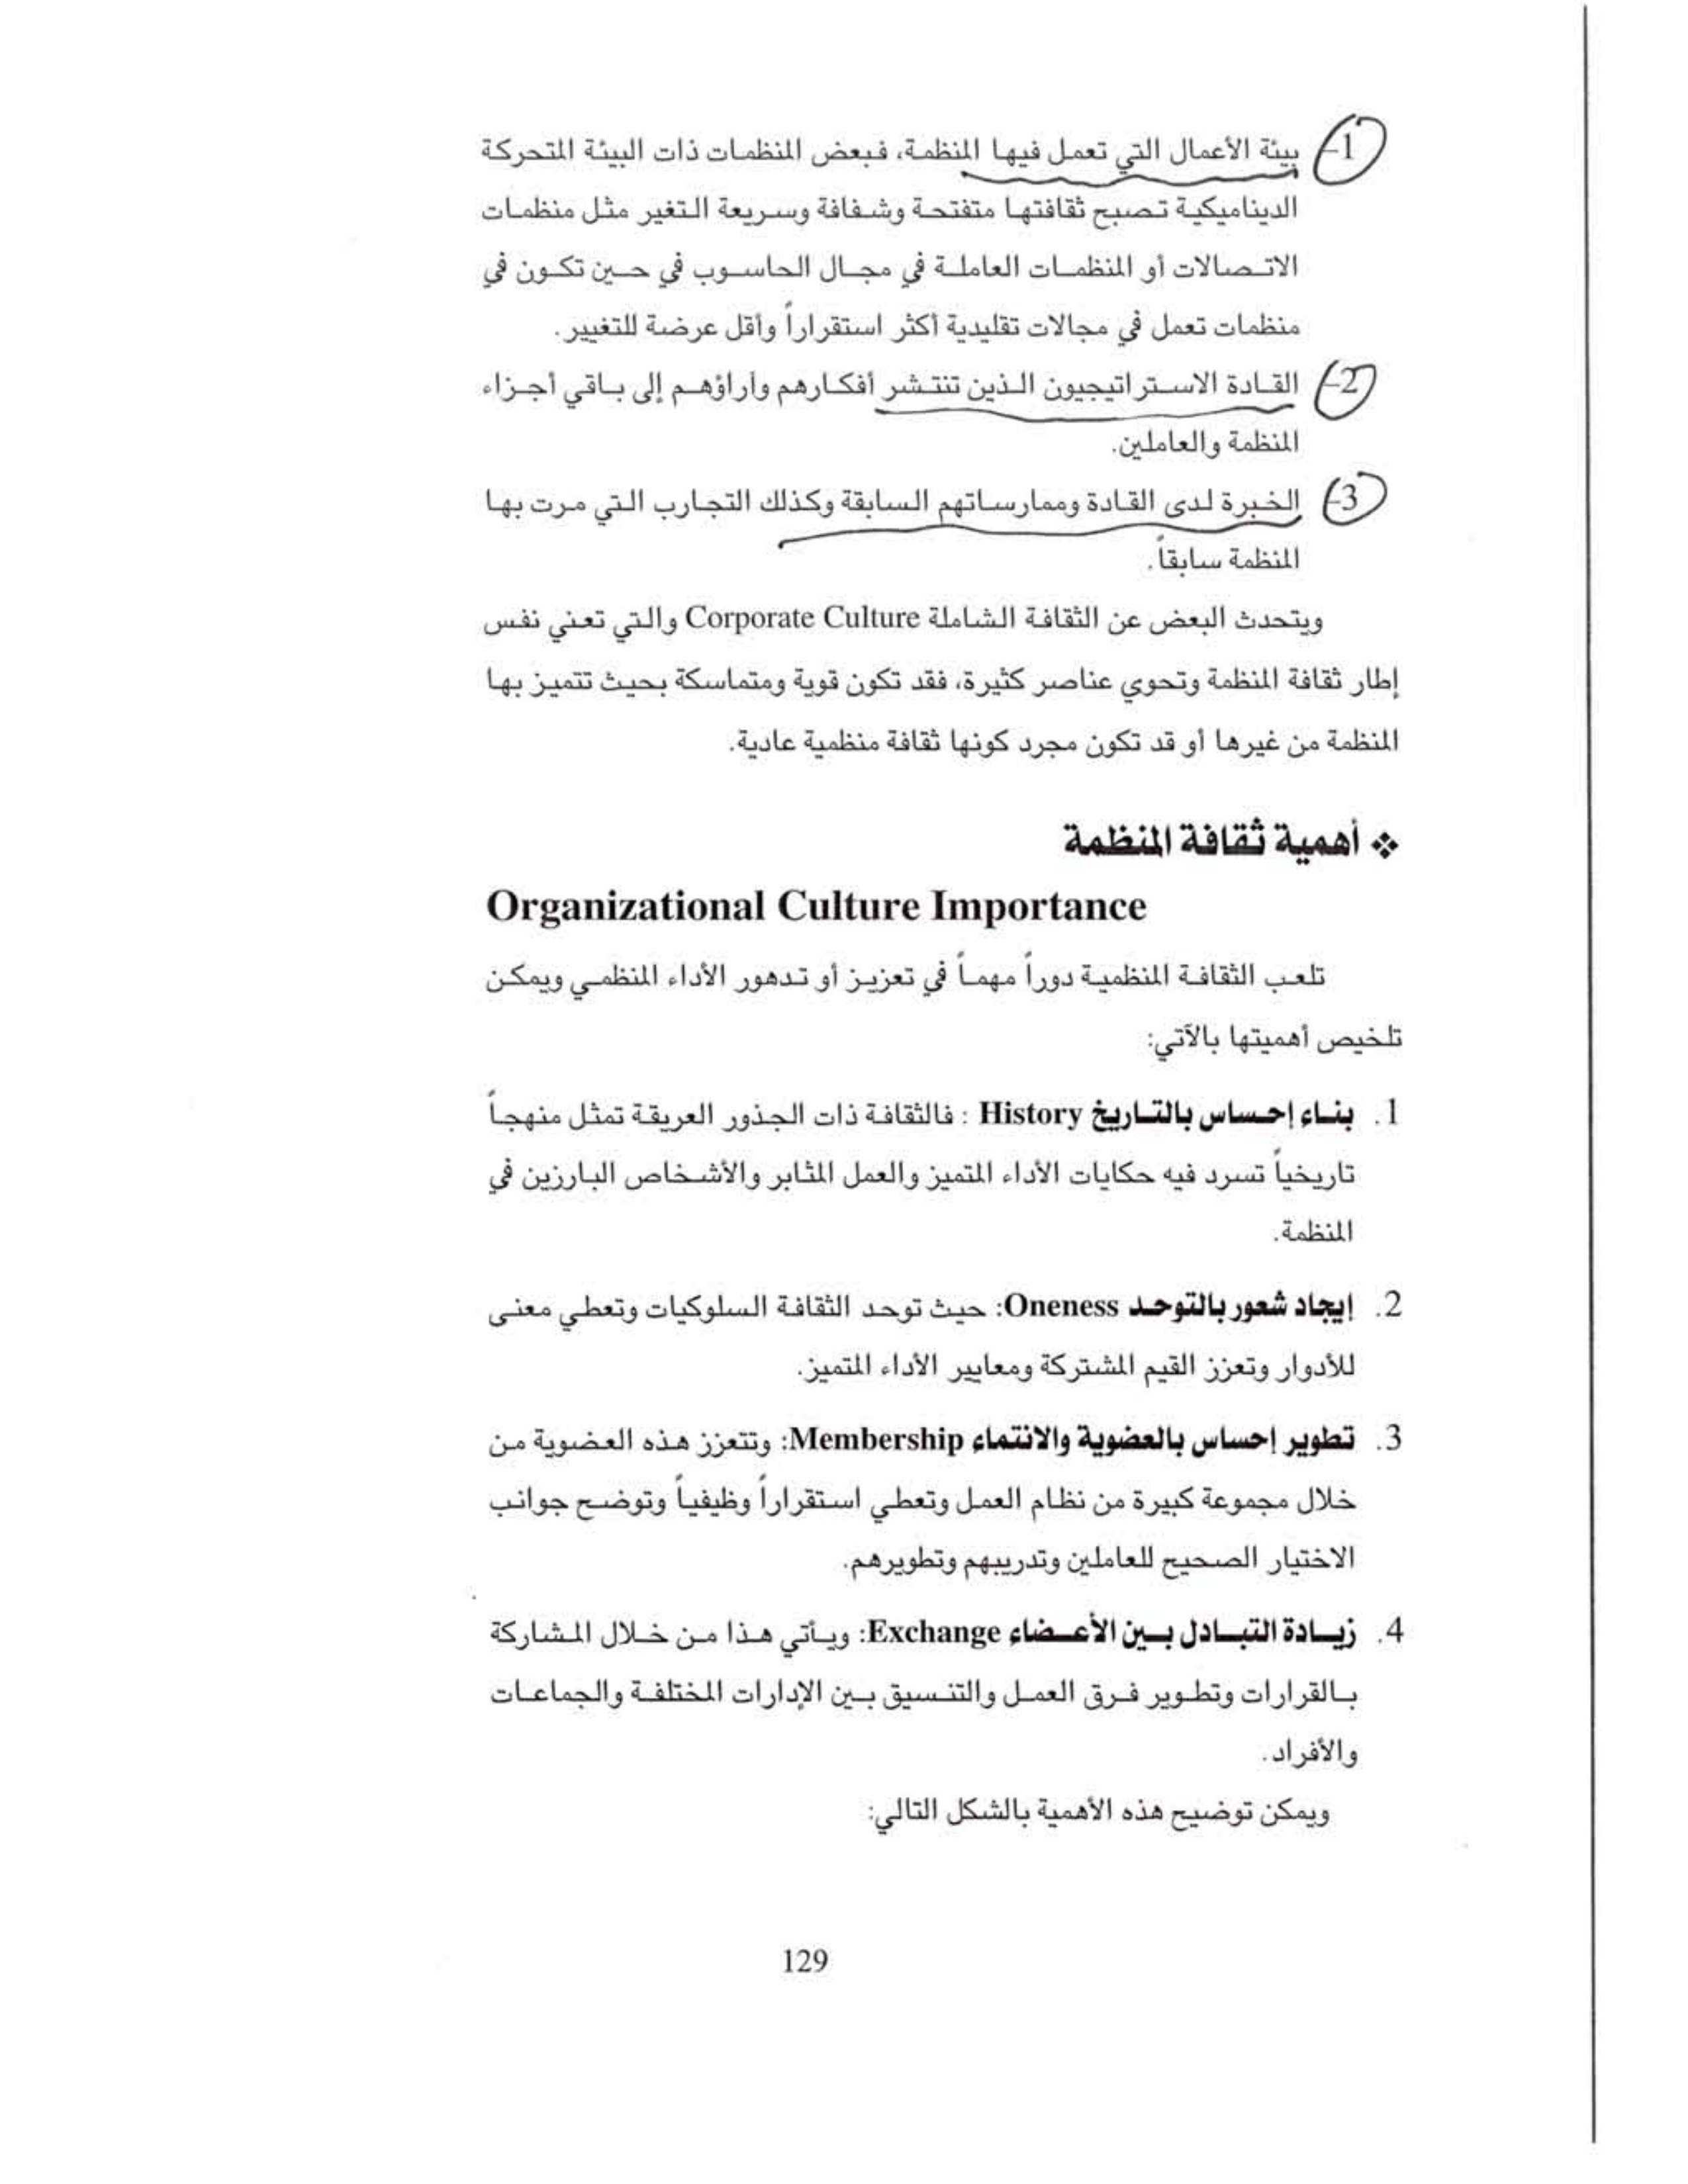 1- بيئة الأعمال التي تعمل فيها المنظمة، فبعض المنظمات ذات البيئة المتحركة
الديناميكية تصبح ثقافتها متفتحة وشفافة وسريعة التغير مثل منظمات
الاتصالات أو المنظمات العاملة في مجال الحاسوب في حين تكون في
منظمات تعمل في مجالات تقليدية أكثر استقراراً وأقل عرضة للتغيير.
2- القادة الاستراتيجيون الذين تنتشر أفكارهم وآراؤهم إلى باقي أجزاء
المنظمة والعاملين.
3- الخبرة لدى القادة وممارساتهم السابقة وكذلك التجارب التي مرت بها
المنظمة سابقاً.
ويتحدث البعض عن الثقافة الشاملة Corporate Culture والتي تعني نفس
إطار ثقافة المنظمة وتحوي عناصر كثيرة، فقد تكون قوية ومتماسكة بحيث تتميز بها
المنظمة من غيرها أو قد تكون مجرد كونها ثقافة منظمية عادية.
❖ أهمية ثقافة المنظمة
Organizational Culture Importance
تلعب الثقافة المنظمية دوراً مهماً في تعزيز أو تدهور الأداء المنظمي ويمكن
تلخيص أهميتها بالآتي:
1. بناء إحساس بالتاريخ History : فالثقافة ذات الجذور العريقة تمثل منهجاً
تاريخياً تسرد فيه حكايات الأداء المتميز والعمل المثابر والأشخاص البارزين في
المنظمة.
2. إيجاد شعور بالتوحد Oneness: حيث توحد الثقافة السلوكيات وتعطي معنى
للأدوار وتعزز القيم المشتركة ومعايير الأداء المتميز.
3. تطوير إحساس بالعضوية والانتماء Membership: وتتعزز هذه العضوية من
خلال مجموعة كبيرة من نظام العمل وتعطي استقراراً وظيفياً وتوضح جوانب
الاختيار الصحيح للعاملين وتدريبهم وتطويرهم.
4. زيادة التبادل بين الأعضاء Exchange: ويأتي هذا من خلال المشاركة
بالقرارات وتطوير فرق العمل والتنسيق بين الإدارات المختلفة والجماعات
والأفراد.
ويمكن توضيح هذه الأهمية بالشكل التالي:
129